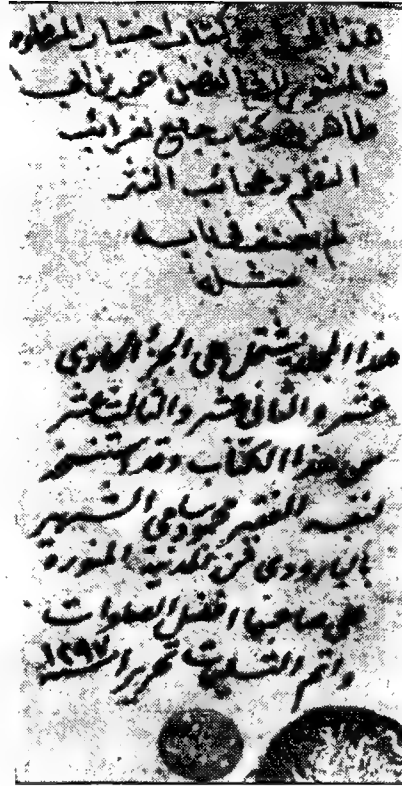 هذا المجلد من كتاب اختيار المنظوم
والمنثور لابى الفضل احمد بن ابى
طاهر وهو كتاب جامع لغرائب
النظم وعجائب النثر
لم يصنف فى بابه
مثله
هذا المجلد يشتمل على الجزء الحادى
عشر والثانى عشر والثالث عشر
من هذا الكتاب وقد استنسخ
لنفسه الفقير محمود سامى الشهير
بالبارودى فى المدينة المنورة
على صاحبها افضل الصلوات
واتم التسليمات تحريرا سنه ١٢٩٧